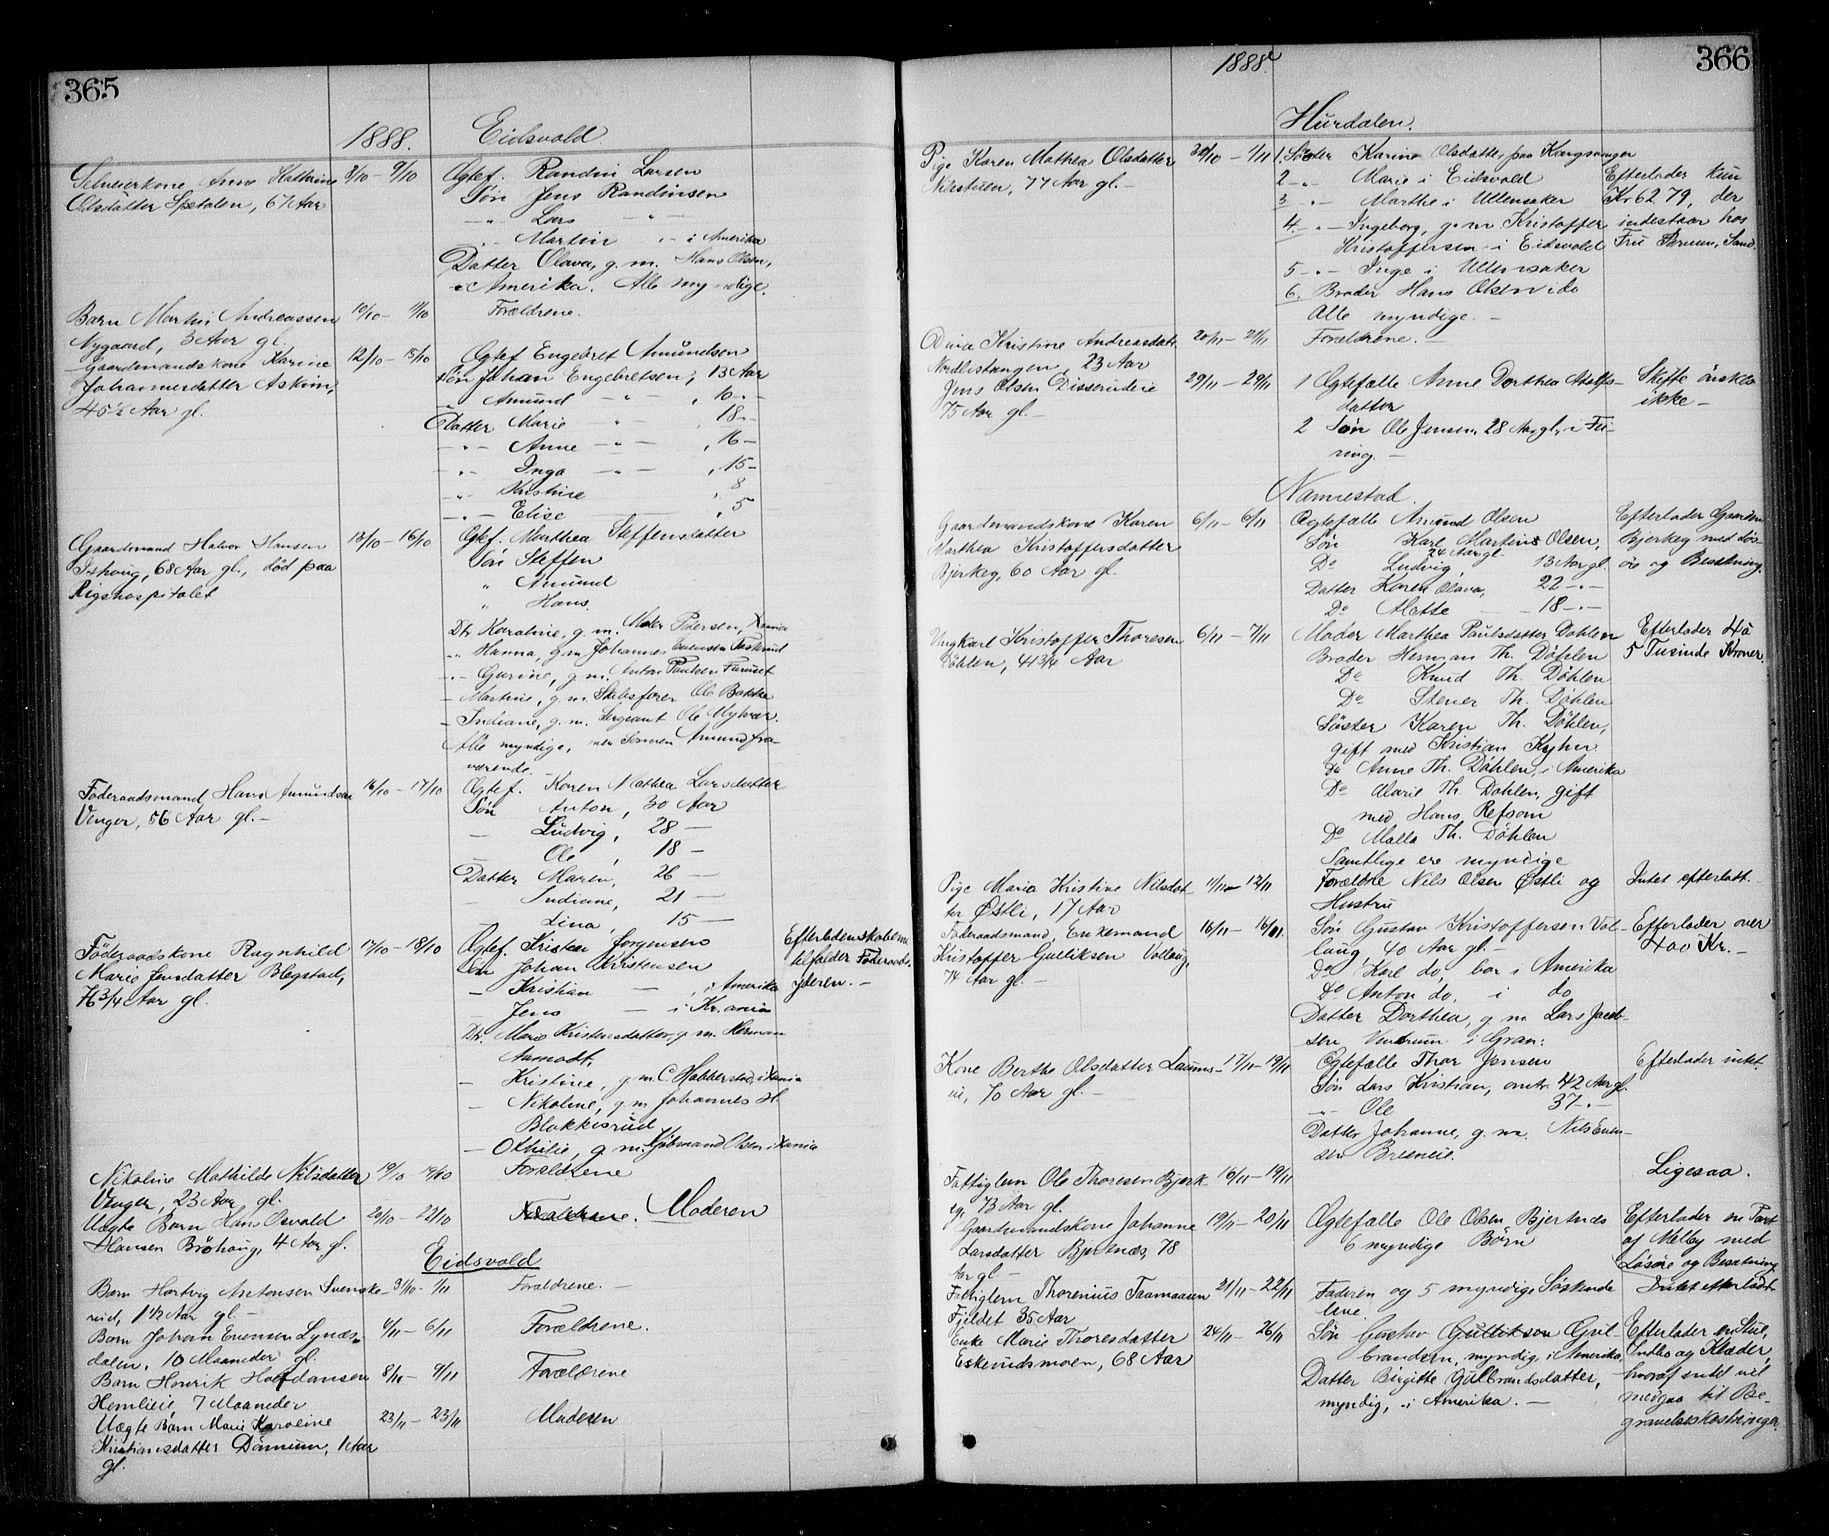 365
1888. Eidsvold
Selveierkone Anne Kathrine 3/10 – 9/10 Ægtef. Randin Larsen
Olsdatter Spetalen, 67 Aar Søn Jens Randinsen
– " – Lars – " –
– " – Martin – " – i Amerika
Datter Olava, g. m. Hans Olsen,
i Amerika. Alle myndige.
Barn Martin Andreassen 10/10 – 11/10 Forældrene.
Nygaard, 3 Aar gl.
Gaardmandskone Karine 12/10 – 15/10 Ægtef Engebret Amundsen
Johannesdatter Askim, Søn Johan Engebretsen, 13 Aar
45 1/2 Aar gl. " Amund – " – , 10 – " –
Datter Marie – " – , 18 –
– " – Anne – " – , 16 –
– " – Inga – " – , 15 –
– " – Kristine , 8
– " – Elise , 5
Gaardmand Halvor Hansen 13/10 – 16/10 Ægtef. Marthea Steffensdatter
68 Aar gl., død paa Søn Steffen
Rigshospitalet " Amund
" Hans.
Dtr. Karoline, g. m. Peder Pedersen, Xania
" Hanna, g. m. Johannes
– " – Gurine, g. m. Anton Paulsen
– Martine, g. m. Skibsfører Ole Bakke
– Indiane, g. m. Sergeant Ole Myhrer.
Alle myndige, men Sønnen Amund fra-
værende.
Føderaadsmand Hans Amundsen 16/10 – 17/10 Ægtef. Karen Mathea Larsdatter
Venger, 56 Aar gl. – Søn Anton, 30 Aar
– Ludvig, 28 –
– Ole , 18 –
Datter Maren, 26 –
– Indiane, 21 –
– Lina, 15 –
Føderaadskone Ragnhild 17/10 – 18/10 Ægtef. Kristen Jørgensen
Marie Jensdatter Blegstad, Søn Johan Kristensen
76 3/4 Aar gl. – Kristian – , i Amerika
– Jens – i Kr.ania
Efterladenskaberne
tilfalder Føderaads-
yderen. –
Dtr. Marie Kristensdatter, g. m. Herman
Aamodt,
– Kristine, g. m. C. Habberstad, i Xania
– Nikoline, g. m. Johannes H.
Blakkisrud
– Othilie, g. m. Olsen, i Xania
Nikoline Mathilde Nilsdatter 19/10 19/10 Forældrene
Venger, 23 Aar gl.
Uægte Barn Hans Osvald 20/10 – 22/10 Forældrene. Moderen
Hansen Brøhaug, 4 Aar gl.
Eidsvold
Barn Hartvig Antonsen Svenske- 31/10 – 1/11 Forældrene. –
rud, 1 1/2 Aar gl. –
Barn Johan Evensen Lynæs- 4/11 – 6/11 Forældrene.
dalen, 10 Maaneder gl.
Barn Henrik Halfdansen 8/11 – 9/11 Forældrene
Hemlieie, 7 Maaneder
Uægte Barn Marie Karoline 23/11 – 23/11 Moderen
Kristiansdatter Dønnum, 1 Aar
gl.
1888. 366
Hurdalen.
Pige Karen Mathea Olsdatter 30/10 – 1/11 1. Søster Karine Olsdatter, paa Kongsvinger
Nerstuen, 77 Aar gl. – 2 – " – Marie i Eidsvold
3 – " – Marthe i Ullensaker
4 – " – Ingeborg, g. m. Kristoffer
Kristoffersen i Eidsvold
5 – " – Inge i Ullensaker
6. Broder Hans Olsen i do
Alle myndige. –
Efterlader kun
Kr 62 79, der
indestaar hos
Fru
Kristine Andreasdatr. 20/11 – 21/11 Forældrene. –
Nordlistangen, 23 Aar
Jens Olsen Disserudeie 29/11 – 29/11 1 Ægtefælle Anne Dorthea Adolfs-
75 Aar gl. – datter
2 Søn Ole Jensen, 28 Aar gl., i Fei-
ring. –
Skifte ønskes
ikke –
Nannestad.
Gaardmandskone Karen 6/11 – 6/11 Ægtefælle Amund Olsen
Marthea Kristoffersdatter Søn Karl Martinus Olsen,
24 Aar gl
Bjerkeg, 60 Aar gl. Do Ludvig, 13 Aar gl
Datter Karen Olava, 22 – " –
Do Alette – 18 – " –
Efterlader Gaarden
Bjerkeg med Løs-
øre og Besætning.
Ungkarl Kristoffer Thoresen 6/11 – 7/11 Moder Marthea Paulsdatter Døhlen
Døhlen, 41 3/4 Aar Broder Herman Th. Døhlen
Do Knud Th. Døhlen
Do Stener Th. Døhlen
Søster Karen Th. Døhlen,
gift med Kristian Kyhn
Do Anne Th. Døhlen, i Amerika
Do Marie Th. Døhlen, gift
med Hans Refsum
Do Malla Th. Døhlen
Samtlige ere myndige
Efterlader 4 à
5 Tusinde Kroner.
Pige Maria Kristine Nilsdat- 11/11 – 12/11 Forældre Nils Olsen Østli og Intet efterladt. –
ter Østli, 17 Aar Hustru
Føderaadsmand, Enkemand 16/11 – 16/11. Søn Gustav Kristoffersen Vol-
Kristoffer Gulliksen Vollaug, laug, 40 Aar gl.
74 Aar gl. – Do Karl do, bor i Amerika
Do Anton do, i do
Datter Dorthea, g. m Lars Jacob-
sen i Gran.
Efterlader over
400 Kr. –
Kone Berthe Olsdatter 17/11 – 19/11 Ægtefælle Thor Jensen Efterlader intet.
70 Aar gl. – Søn Lars Kristian, omtr. 42 Aar gl.
– " – Ole 37 – " –
Datter Johanne, g. m. Nils Even-
sen
Fattiglem Ole Thoresen Bjerk- 16/11 – 19/11 Ligesaa.
eg, 73 Aar gl.
Gaardmandskone Johanne 19/11 – 20/11 Ægtefælle Ole Olsen Bjertnæs
Larsdatter Bjertnæs, 78 6 myndige Børn
Aar gl –
Efterlader en Part
af Melby med
Løsøre og Besætning
Fattiglem Thorenius Taamassen 21/11 – 22/11 Faderen og 5 myndige Søskende Intet efterladt
Fjeldet 35 Aar
Enke Marie Thoresdatter 24/11 – 26/11 Søn Gustav Gulliksen Gul-
Eskerudsmoen, 68 Aar brandsen, myndig, i Amerika,
Datter Birgitte Gulbrandsdatter,
myndig, i Amerika. –
Efterlader en Stue,
Indbo og Klæder,
hvoraf intet vil
medgaa til Be-
gravelseskostninger